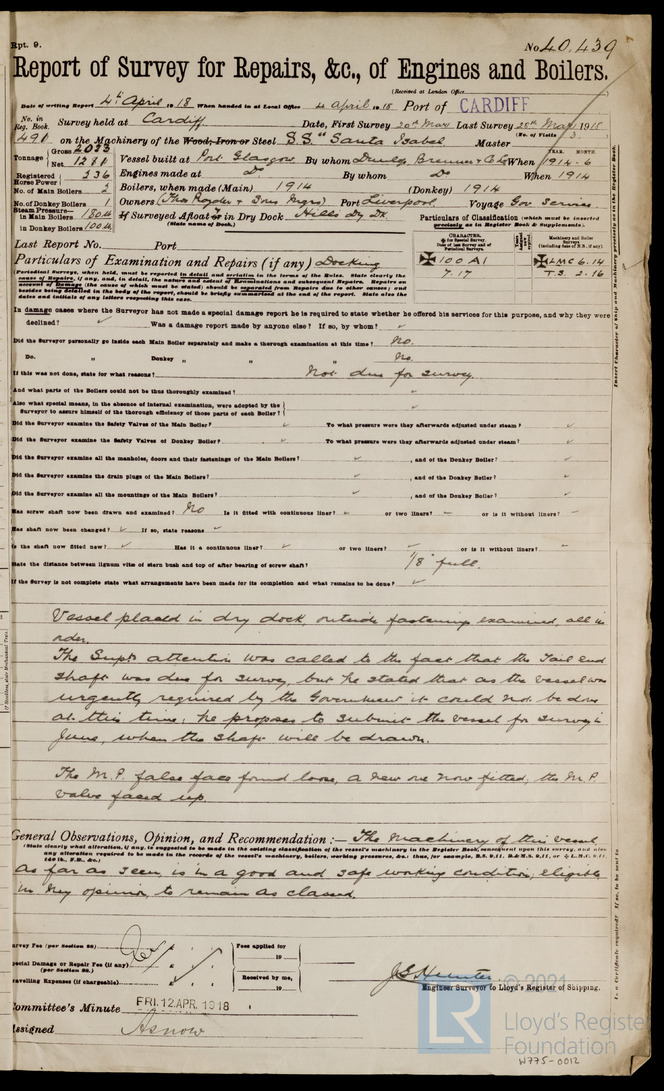 Rpt. 9.
No. 40,439
Report of Survey for Repairs, &c., of Engines and Boilers.
(Received at London Office
Date of writing Report 4th April 1918 When handed in at Local Office 4 April 1918 Port of CARDIFF
No. in Reg. Book. Survey held at Cardiff Date, First Survey 20th Mar Last Survey 28th Mar 1918
(No. of Visits 3.)
491 on the Machinery of the Wood, Iron or Steel S.S. "Santa Isabel Master
Tonnage Gross 2023 Net 1281 Vessel built at Port Glasgow By whom Dunlop Bremner & Co Ld When 1914-6
YEAR. MONTH.
Registered Horse Power 236 Engines made at Do By whom Do When 1914
No. of Main Boilers 2 Boilers, when made (Main) 1914 (Donkey) 1914
No. of Donkey Boilers 1 Owners (Thos Royden & Sons Mgrs) Port Liverpool Voyage Gov Service
Steam Pressure— in Main Boilers 180 lb If Surveyed Afloat or in Dry Dock Hills Dy Dk.
in Donkey Boilers 100 lb (State name of Dock.)
Particulars of Classification (which must be inserted precisely as in Register Book & Supplements).
Last Report No. Port
CHARACTER.
Machinery and Boiler Surveys (including date of N.B. if any).
100 A1
7.17
LMC 6.14
T.S. 2.16
Particulars of Examination and Repairs (if any) Docking
(Periodical Surveys, when held, must be reported in detail and seriatim in the terms of the Rules. State clearly the cause of Repairs, if any, and, in detail, the nature and extent of Examinations and subsequent Repairs. Repairs on account of Damage (the cause of which must be stated) should be separated from Repairs due to other causes; and besides being detailed in the body of the report, should be briefly summarised at the end of the report. State also the dates and initials of any letters respecting this case.
In damage cases where the Surveyor has not made a special damage report he is required to state whether he offered his services for this purpose, and why they were
declined? Was a damage report made by anyone else? If so, by whom?
Did the Surveyor personally go inside each Main Boiler separately and make a thorough examination at this time? No.
Do. " Donkey " " " No.
If this was not done, state for what reasons? Not due for survey
And what parts of the Boilers could not be thus thoroughly examined?
Also what special means, in the absence of internal examination, were adopted by the Surveyor to assure himself of the thorough efficiency of those parts of each Boiler?
Did the Surveyor examine the Safety Valves of the Main Boiler? To what pressure were they afterwards adjusted under steam?
Did the Surveyor examine the Safety Valves of Donkey Boiler? To what pressure were they afterwards adjusted under steam?
Did the Surveyor examine all the manholes, doors and their fastenings of the Main Boilers? , and of the Donkey Boiler?
Did the Surveyor examine the drain plugs of the Main Boilers? , and of the Donkey Boiler?
Did the Surveyor examine all the mountings of the Main Boilers? , and of the Donkey Boiler?
Has screw shaft now been drawn and examined? No Is it fitted with continuous liner? – or two liners? – or is it without liners? –
Has shaft now been changed? If so, state reasons
Is the shaft now fitted new? Has it a continuous liner? or two liners? or is it without liners?
State the distance between lignum vitæ of stern bush and top of after bearing of screw shaft? 1/8" full.
If the Survey is not complete state what arrangements have been made for its completion and what remains to be done?
Vessel placed in dry dock, outside fastenings examined, all in
order.
The Supts attention was called to the fact that the Tail end
shaft was due for survey, but he stated that as the vessel was
urgently required by the Government it could not be done
at this time; he proposes to submit the vessel for survey in
June, when the shaft will be drawn.
The M.P. false face found loose, a new one now fitted, the M.P.
valve faced up.
General Observations, Opinion, and Recommendation :— The machinery of this vessel
(State clearly what alteration, if any, is suggested to be made in the existing classification of the vessel's machinery in the Register Book, consequent upon this survey, and also any alteration required to be made in the records of the vessel's machinery, boilers, working pressures, &c.: thus, for example,
as far as seen, is in a good and safe working condition, eligible
in my opinion, to remain as classed.
Survey Fee (per Section 28)
Fees applied for
19
Special Damage or Repair Fee (if any) (per Section 28.)
Travelling Expenses (if chargeable)
Received by me,
19
Engineer Surveyor to Lloyd's Register of Shipping.
Committee's Minute FRI. 12 APR. 1918
Assigned As now
© 2021
LR
Lloyd's Register
Foundation
W775-0012